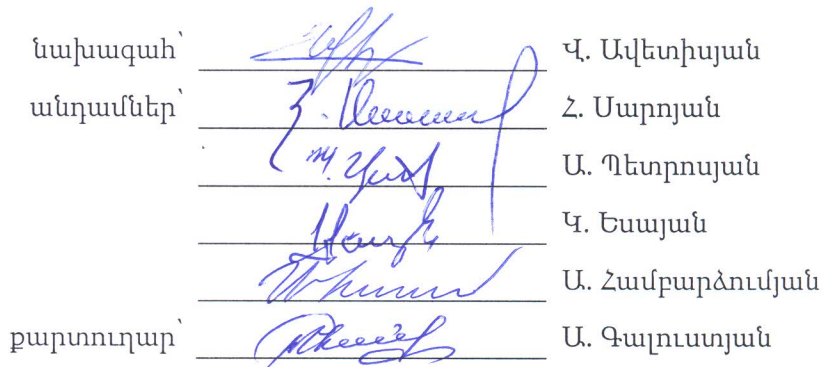 նախագահ՝ Վ. Ավետիսյան
անդամներ՝ Հ. Սարոյան
Ա. Պետրոսյան
Կ. Եսայան
Ա. Համբարձումյան
քարտուղար՝ Ա. Գալուստյան